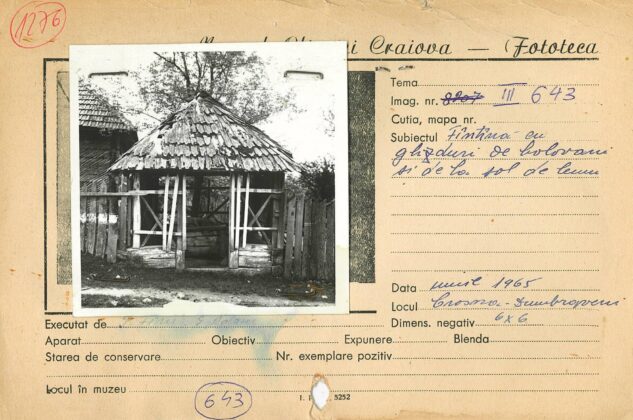 1276
Craiova — Fototeca
Tema
Imag. nr. III 643
Cutia, mapa nr.
Subiectul Fîntîna cu
ghizduri de bolovani
si de la sol de lemn
Data 1965
Locul
Dimens. negativ 6x6
Executat de
Aparat Obiectiv Expunere Blenda
Starea de conservare Nr. exemplare pozitiv
Locul în muzeu
643
5252